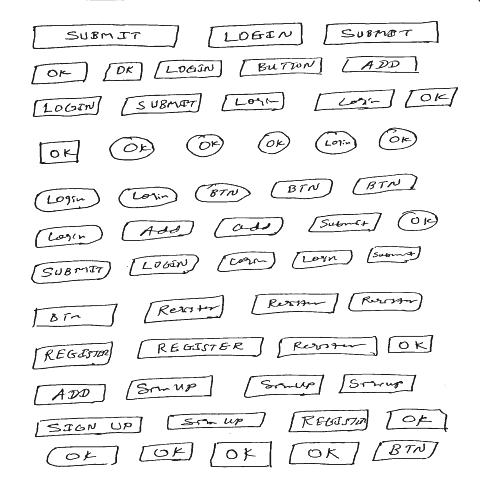 SUBMIT LOGIN SUBMIT
OK OK LOGIN BUTTON ADD
LOGIN SUBMIT Login Login OK
OK OK OK OK Login OK
Login Login BTN BTN BTN
Login Add add Submit OK
SUBMIT LOGIN Login Login Submit
BTn Register Register Register
REGISTER REGISTER Register OK
ADD Sign UP Sign UP Sign UP
SIGN UP Sign UP REGISTER OK
OK OK OK OK BTN